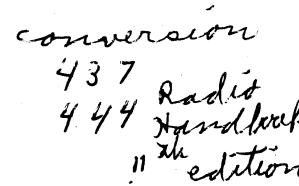 conversion
437
444 Radio
Handbook
11th edition